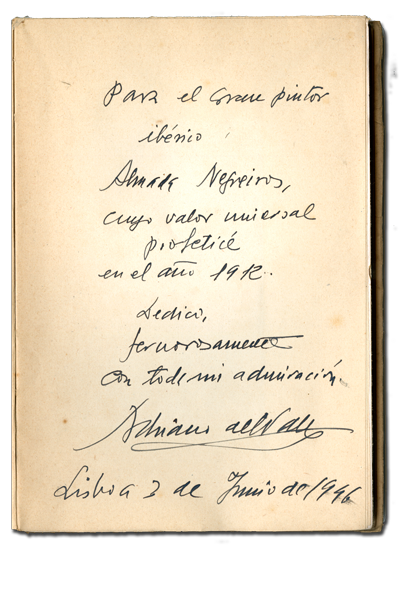 Para el gran pintor
ibérico
Almada Negreiros,
cuyo valor universal
profeticé
en el año 1912.
Dedico,
fervorosamente
con toda mi admiración.
Adriano del Valle
Lisboa 3 de Junio de 1946